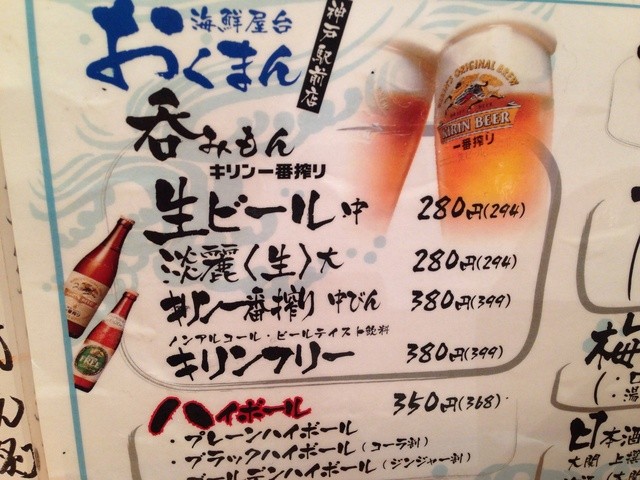 海鮮屋台
おくまん
神戸駅前店
呑みもん
KIRIN BEER
一番搾り
キリン一番搾り
生ビール 中 280円(294)
淡麗〈生〉大 280円(294)
キリン一番搾り 中びん 380円(399)
ノンアルコール・ビールテイスト飲料
キリンフリー 380円(399)
ハイボール 350円(368)
・プレーンハイボール
・ブラックハイボール(コーラ割)
・ゴールデンハイボール(ジンジャー割)
梅
日本酒
大関 上撰